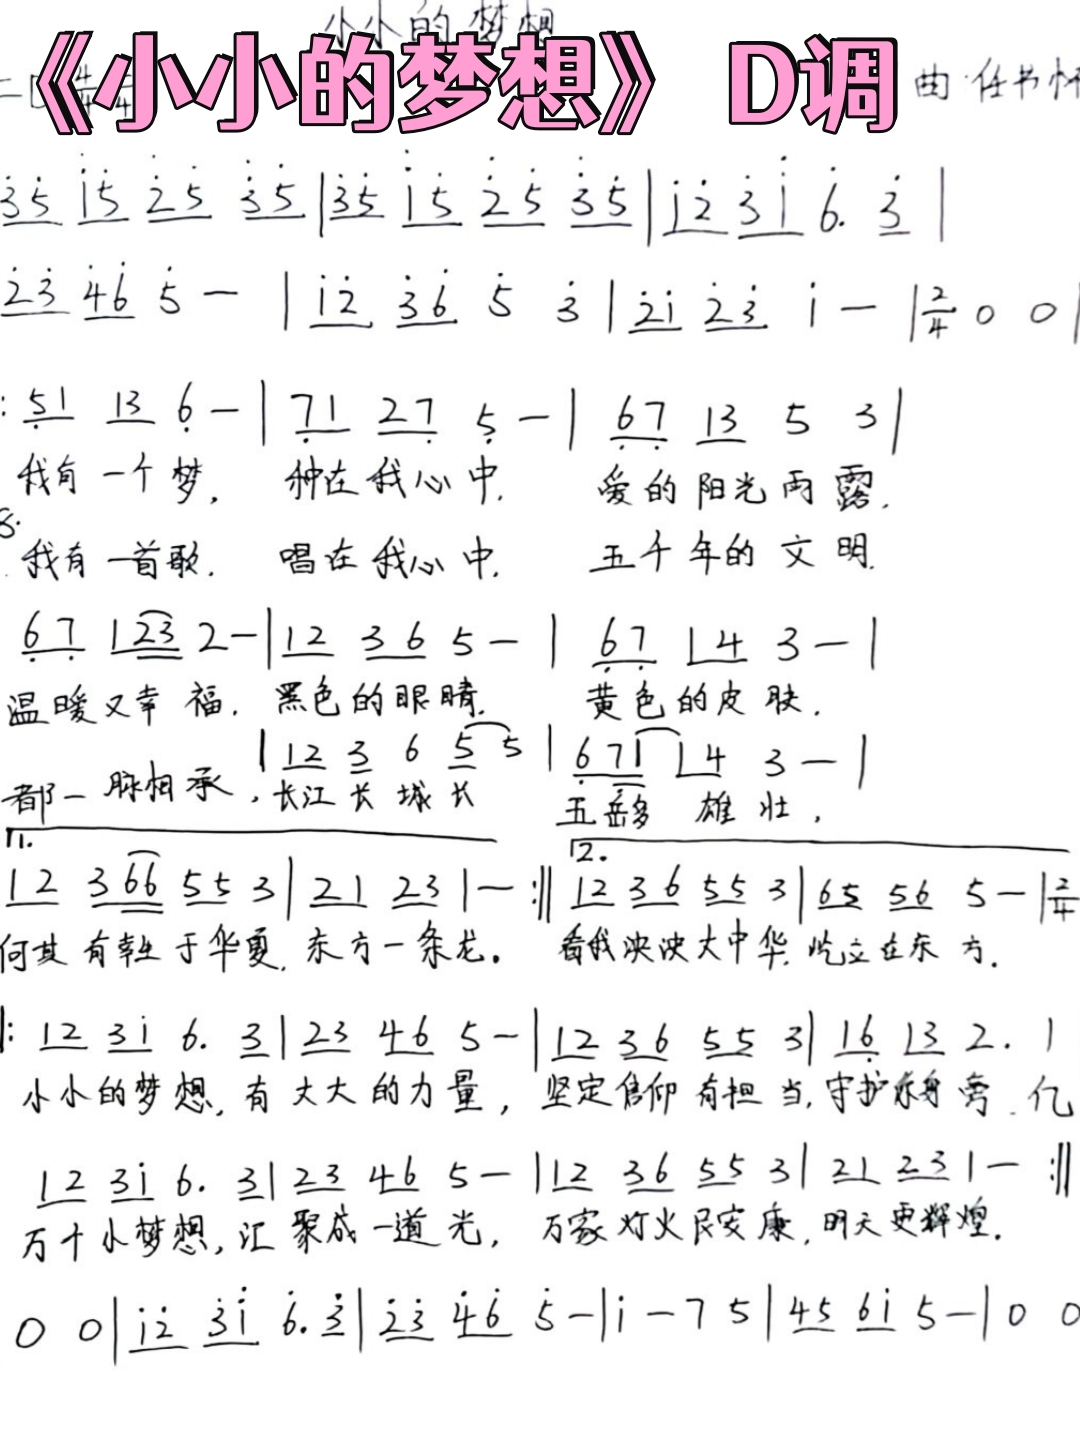 小小的梦想
《小小的梦想》 D调
曲·任书怀
35 i5 25 35 | 35 i5 25 35 | i2 3i 6. 3 |
23 46 5 — | i2 36 5 3 | 2i 23 i — | 2/4 0 0 |
: 51 13 6 — | 71 27 5 — | 67 13 5 3 |
我有 一个 梦, 种在 我心 中, 爱的 阳光 雨 露,
我有 一首歌, 唱在 我心 中, 五千 年的 文 明
67 123 2 — | 12 36 5 — | 67 14 3 — |
温暖又幸 福, 黑色的眼睛, 黄色的皮 肤,
| 12 3 6 5 5 | 671 14 3 — |
都一脉相承, 长江 长 城 长 五岳多 雄 壮,
1. 2.
12 366 55 3 | 21 23 1 — :‖ 12 36 55 3 | 65 56 5 — | 2/4
何其 有幸生 于华夏, 东方一条龙。 看我泱泱大中华, 屹立在东 方.
‖: 12 3i 6. 3 | 23 46 5 — | 12 36 55 3 | 16 13 2. 1
小小的梦想, 有 大大 的力量, 坚定信仰 有担 当, 守护你身 旁. 亿
12 3i 6. 3 | 23 46 5 — | 12 36 55 3 | 21 23 1 — :‖
万个小梦想, 汇 聚成一道 光, 万家灯火民安康, 明天更辉煌.
0 0 | i2 3i 6. 3 | 23 46 5 — | i — 7 5 | 45 6i 5 — | 0 0